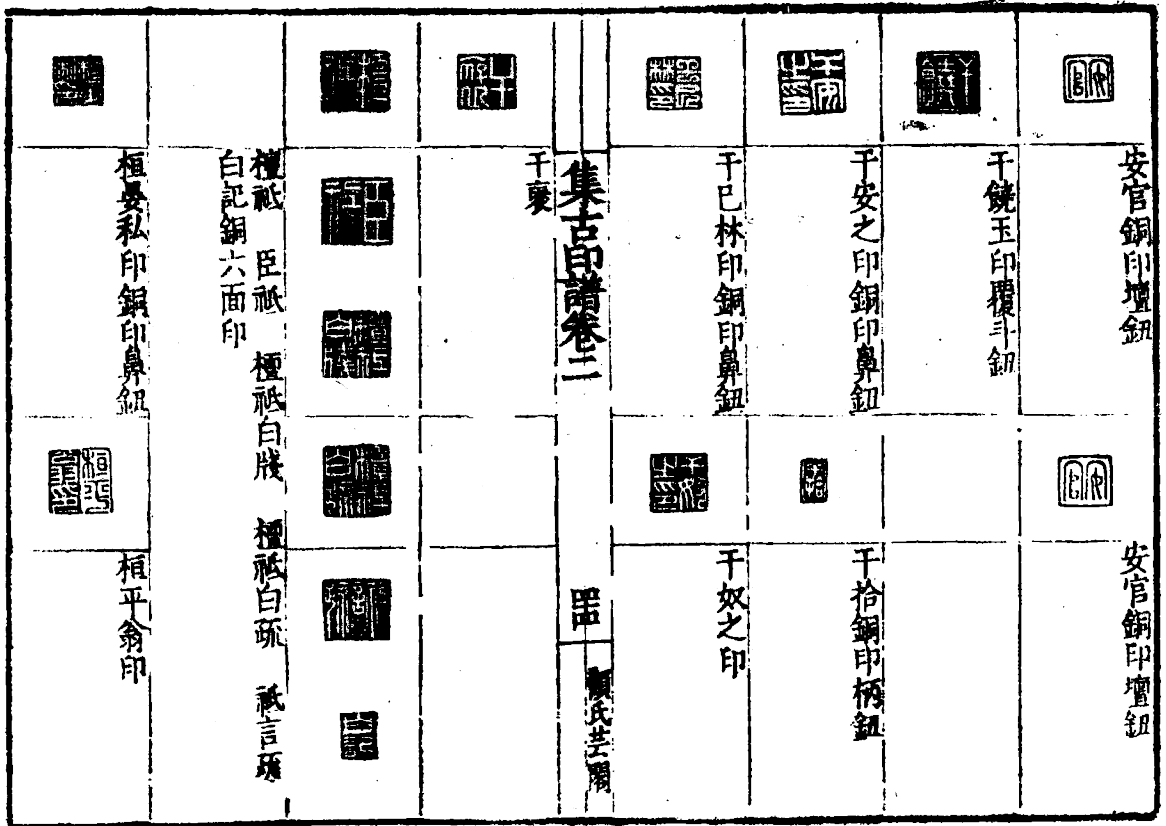 安官銅印壇鈕
安官銅印壇鈕
干饒玉印覆斗鈕
干安之印銅印鼻鈕
干拾銅印柄鈕
干巳林印銅印鼻鈕
干奴之印
集古印譜卷二
顧氏芸閣
干褒
檀祗 臣祗 檀祗白牋 檀祗白疏 祗言疏
白記銅六面印
桓晏私印銅印鼻鈕
桓平翁印